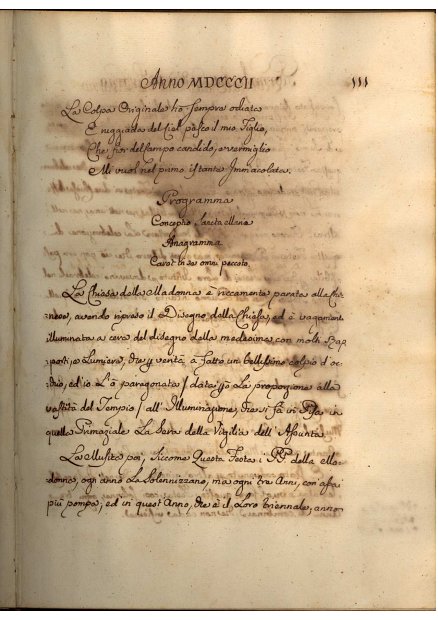 Anno MDCCCII 111
La Colpa Originale hò sempre odiata
E ruggiada del Ciel pasco il mio Figlio,
Che fior del campo candido, e vermiglio
Mi vuol nel primo istante Immacolata.
Programma
Conceptio Sancta
Anagramma
omni peccato.
La Chiesa della Madonna è riccamente parata alla
avendo ripreso il Disegno della Chiesa, ed è vagamente
illuminata a cera del disegno della medesima con molti
Lumiera, che in verità à fatto un bellissimo colpio d'oc-
chio, ed io L'ò paragonata (data la proporzione alla
vastità del Tempio) all'Illuminazione, che si fà in Pisa in
quella Primaziale La Sera della Vigilia dell'Assunta
La Musica poi, siccome Questa Festa i PP. della Ma-
donna, ogni anno La Solennizzano, ma ogni tre Anni, con assai
più pompa, ed in quest'Anno, che è il Loro triennale, anno